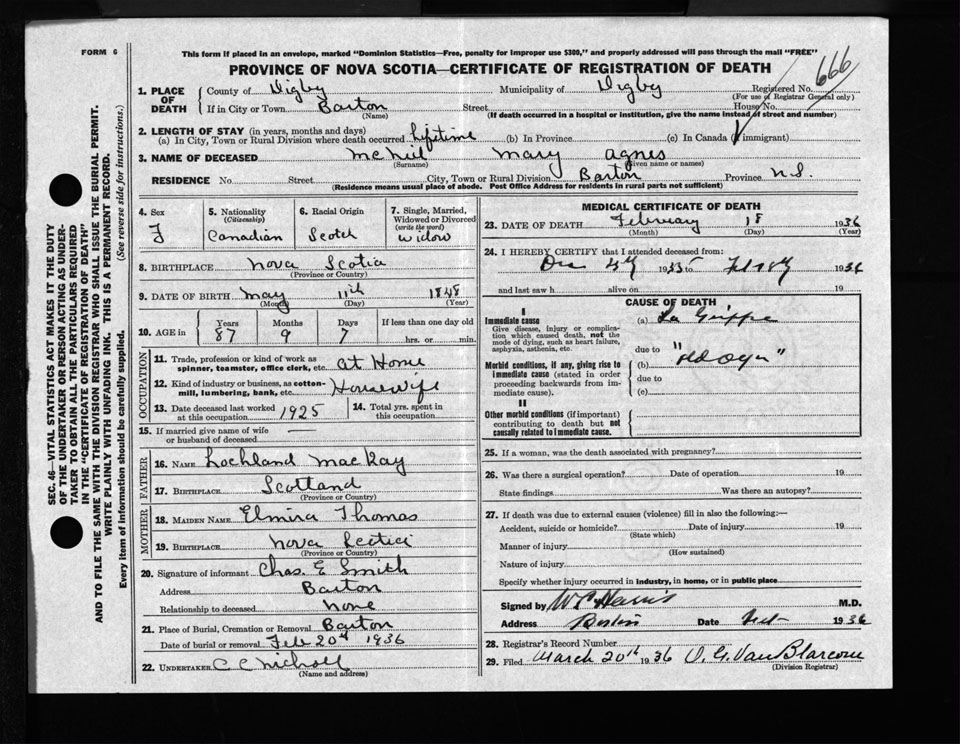 FORM 6
This form if placed in an envelope, marked "Dominion Statistics—Free, penalty for improper use $300," and properly addressed will pass through the mail "FREE"
PROVINCE OF NOVA SCOTIA—CERTIFICATE OF REGISTRATION OF DEATH
666
SEC. 46—VITAL STATISTICS ACT MAKES IT THE DUTY
OF THE UNDERTAKER OR PERSON ACTING AS UNDER-
TAKER TO OBTAIN ALL THE PARTICULARS REQUIRED
IN THE "CERTIFICATE OF REGISTRATION OF DEATH"
AND TO FILE THE SAME WITH THE DIVISION REGISTRAR WHO SHALL ISSUE THE BURIAL PERMIT.
WRITE PLAINLY WITH UNFADING INK. THIS IS A PERMANENT RECORD.
Every item of information should be carefully supplied. (See reverse side for instructions.)
1. PLACE OF DEATH County of Digby Municipality of Digby Registered No.
(For use of Registrar General only)
If in City or Town Barton Street House No.
(Name) (If death occurred in a hospital or institution, give the name instead of street and number)
2. LENGTH OF STAY (in years, months and days)
(a) In City, Town or Rural Division where death occurred lifetime (b) In Province (c) In Canada (if immigrant)
3. NAME OF DECEASED McNeil Mary Agnes
(Surname) (Given name or names)
RESIDENCE No. Street City, Town or Rural Division Barton Province N.S.
(Residence means usual place of abode. Post Office Address for residents in rural parts not sufficient)
4. Sex
F
5. Nationality
(Citizenship)
Canadian
6. Racial Origin
Scotch
7. Single, Married,
Widowed or Divorced
(write the word)
widow
8. BIRTHPLACE Nova Scotia
(Province or Country)
9. DATE OF BIRTH May 11th 1848
(Month) (Day) (Year)
10. AGE in Years Months Days If less than one day old
87 9 7 hrs. or min.
OCCUPATION
11. Trade, profession or kind of work as
spinner, teamster, office clerk, etc. At Home
12. Kind of industry or business, as cotton-
mill, lumbering, bank, etc. Housewife
13. Date deceased last worked
at this occupation 1925
14. Total yrs. spent in
this occupation
15. If married give name of wife
or husband of deceased —
FATHER
16. NAME Lochland MacKay
17. BIRTHPLACE Scotland
(Province or Country)
MOTHER
18. MAIDEN NAME Elmira Thomas
19. BIRTHPLACE Nova Scotia
(Province or Country)
20. Signature of informant Chas. E Smith
Address Barton
Relationship to deceased none
21. Place of Burial, Cremation or Removal Barton
Date of burial or removal Feb 20th 1936
22. UNDERTAKER C C Nicholl
(Name and address)
MEDICAL CERTIFICATE OF DEATH
23. DATE OF DEATH February 18 1936
(Month) (Day) (Year)
24. I HEREBY CERTIFY that I attended deceased from:
Dec 1935 to Feb 18 1936
and last saw h alive on 19
CAUSE OF DEATH
I
Immediate cause
Give disease, injury or complica-
tion which caused death, not the
mode of dying, such as heart failure,
asphyxia, asthenia, etc.
(a) La Grippe
due to
Morbid conditions, if any, giving rise to
immediate cause (stated in order
proceeding backwards from im-
mediate cause).
(b) "Old Age"
due to
(c)
II
Other morbid conditions (if important)
contributing to death but not
causally related to immediate cause.
25. If a woman, was the death associated with pregnancy?
26. Was there a surgical operation? Date of operation 19
State findings Was there an autopsy?
27. If death was due to external causes (violence) fill in also the following:—
Accident, suicide or homicide? Date of injury 19
(State which)
Manner of injury
(How sustained)
Nature of injury
Specify whether injury occurred in industry, in home, or in public place
Signed by M.D.
Address Date Feb 1936
28. Registrar's Record Number
29. Filed March 20th 1936 O. G. Van Blarcom
(Division Registrar)